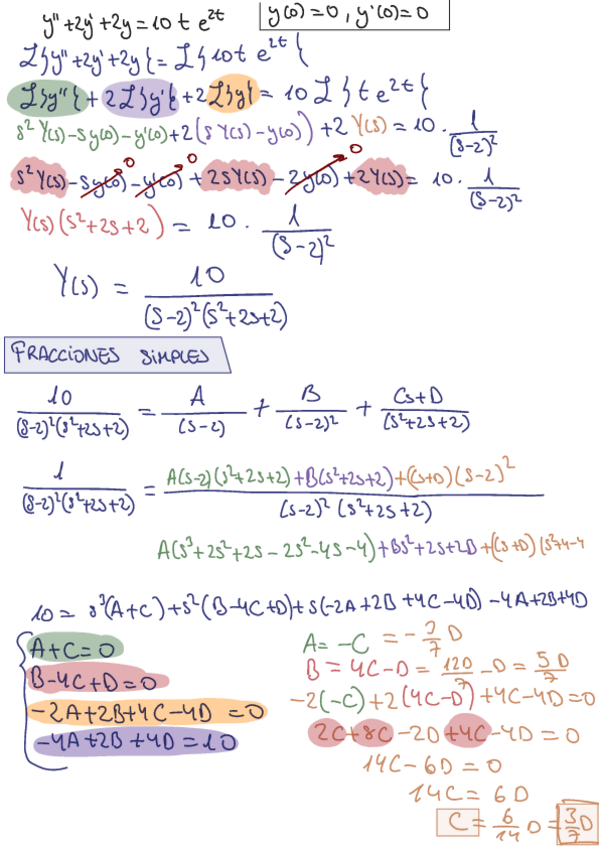 y''+2y'+2y=10 t e^2t   y(0)=0, y'(0)=0
L{y''+2y'+2y}=L{10t e^2t}
L{y''}+2L{y'}+2L{y}=10 L{t e^2t}
s²Y(s)-sy(0)-y'(0)+2(sY(s)-y(0))+2Y(s)=10·1/(s-2)²
s²Y(s)-sy(0)-y'(0)+2sY(s)-2y(0)+2Y(s)=10·1/(s-2)²
0 0 0
Y(s)(s²+2s+2)=10·1/(s-2)²
Y(s)=10/((s-2)²(s²+2s+2))
FRACCIONES SIMPLES
10/((s-2)²(s²+2s+2))=A/(s-2)+B/(s-2)²+(Cs+D)/(s²+2s+2)
1/((s-2)²(s²+2s+2))=(A(s-2)(s²+2s+2)+B(s²+2s+2)+(Cs+D)(s-2)²)/((s-2)²(s²+2s+2))
A(s³+2s²+2s-2s²-4s-4)+Bs²+2s+2B+(Cs+D)(s²+4-4
10=s³(A+C)+s²(B-4C+D)+s(-2A+2B+4C-4D)-4A+2B+4D
A+C=0
B-4C+D=0
-2A+2B+4C-4D=0
-4A+2B+4D=10
A=-C=-3/7D
B=4C-D=12D/7-D=5D/7
-2(-C)+2(4C-D)+4C-4D=0
2C+8C-2D+4C-4D=0
14C-6D=0
14C=6D
C=6/14D=3/7D